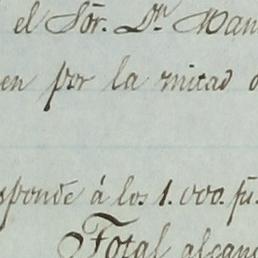 el Sõr. Dn. Man
en por la mitad
sponde á los 1.000. fu.
Total alcan